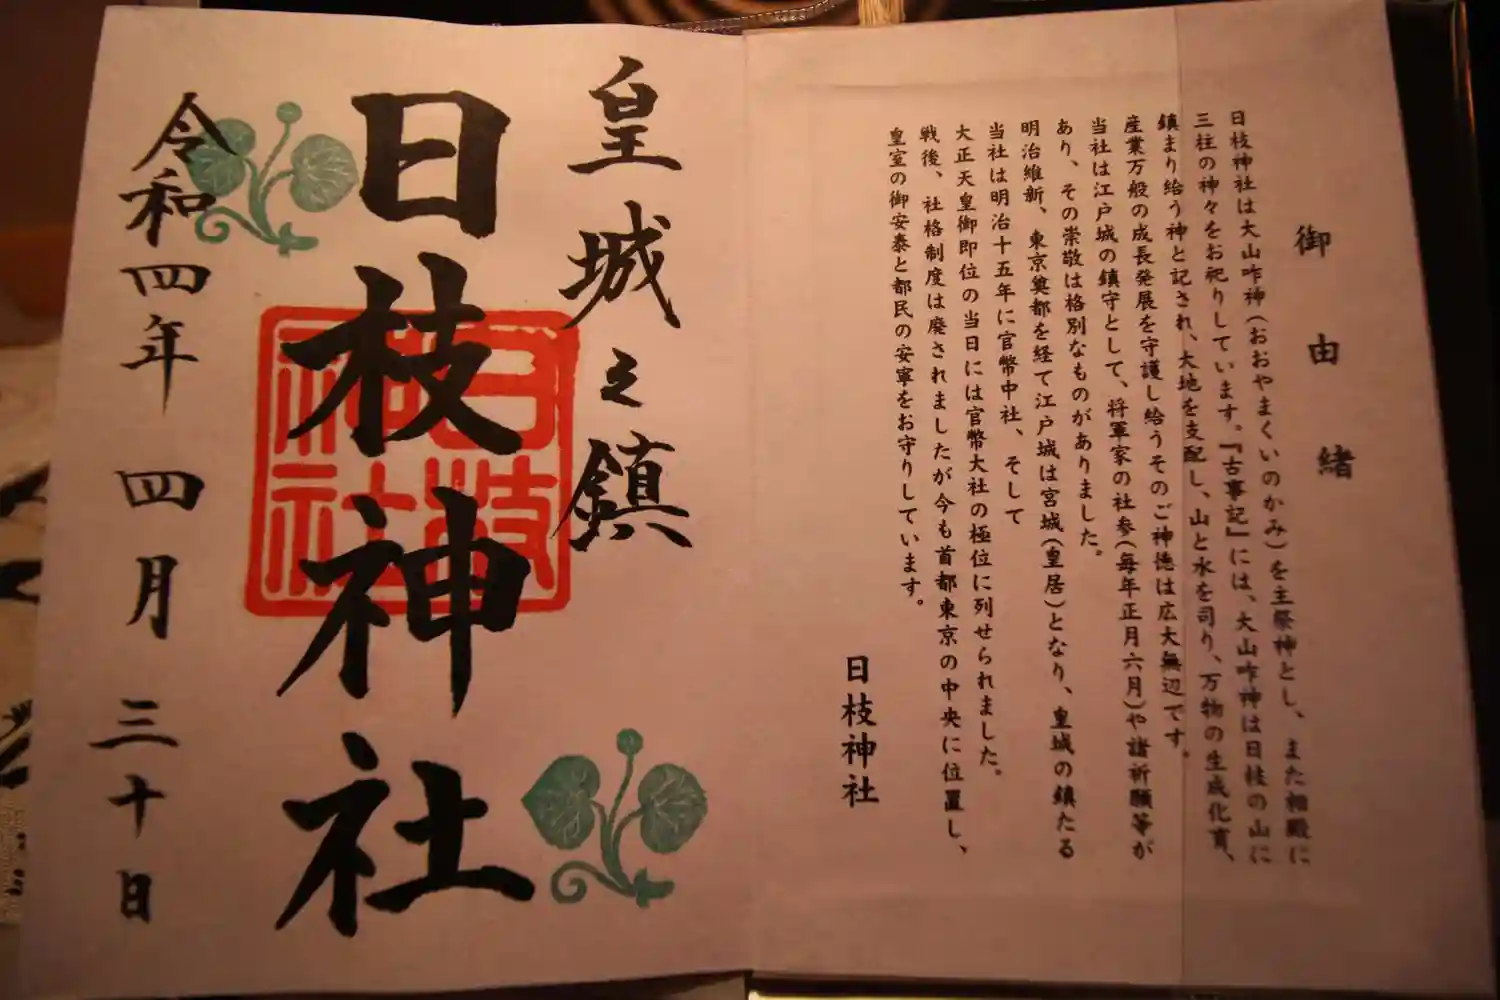 御由緒
日枝神社は大山咋神(おおやまくいのかみ)を主祭神とし、また相殿に
三柱の神々をお祀りしています。『古事記』には、大山咋神は日枝の山に
鎮まり給う神と記され、大地を支配し、山と水を司り、万物の生成化育、
産業万般の成長発展を守護し給うそのご神徳は広大無辺です。
当社は江戸城の鎮守として、将軍家の社参(毎年正月六月)や諸祈願等が
あり、その崇敬は格別なものがありました。
明治維新、東京奠都を経て江戸城は宮城(皇居)となり、皇城の鎮たる
当社は明治十五年に官幣中社、そして
大正天皇御即位の当日には官幣大社の極位に列せられました。
戦後、社格制度は廃されましたが今も首都東京の中央に位置し、
皇室の御安泰と都民の安寧をお守りしています。
日枝神社
皇城之鎮
日枝神社
日枝
神社
令和四年四月三十日